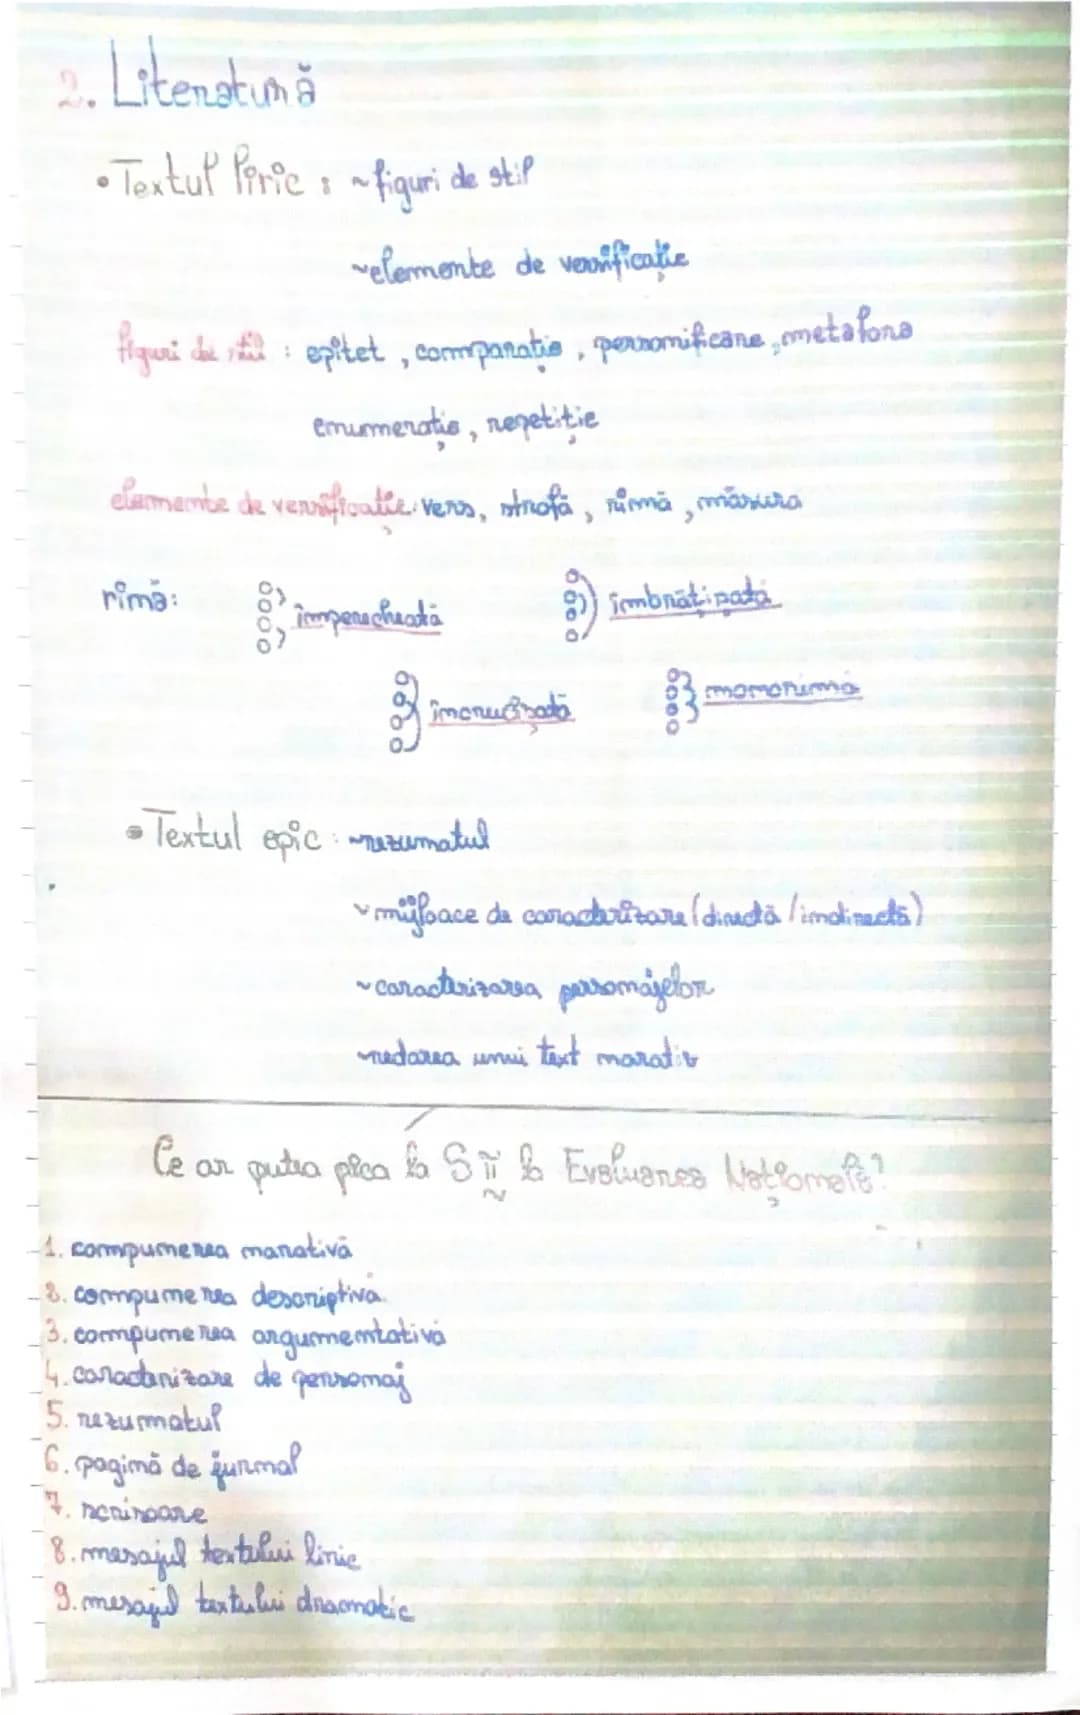 2. Literatură
• Textul liric : ~figuri de stil
~elemente de versificație
figuri de stil : epitet, comparație, personificare, metafora
enumerație, repetiție
elemente de versificație: vers, strofă, rimă, măsura
rimă: împerecheată îmbrățișată
încrucișată monorima
• Textul epic : ~rezumatul
~mijloace de caracterizare (directă / indirectă)
~caracterizarea personajelor
~redarea unui text narativ
Ce ar putea pica la S II la Evaluarea Națională?
1. compunerea narativă
2. compunerea descriptivă
3. compunerea argumentativă
4. caracterizare de personaj
5. rezumatul
6. pagină de jurnal
7. scrisoare
8. mesajul textului liric
9. mesajul textului dramatic